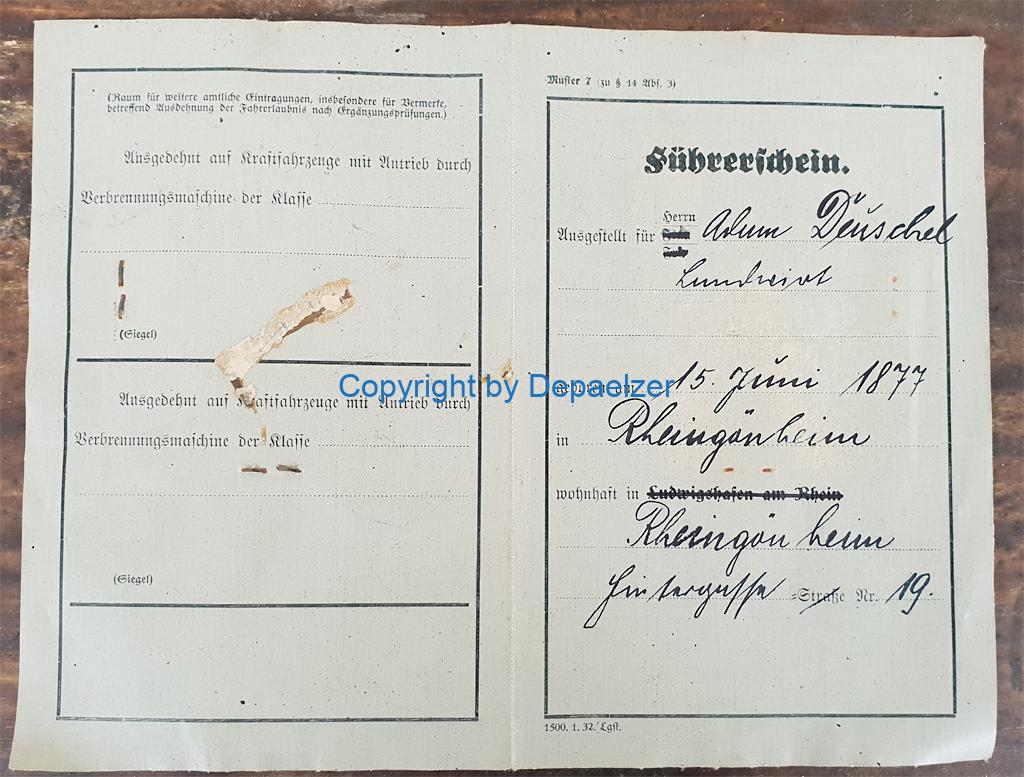 (Raum für weitere amtliche Eintragungen, insbesondere für Vermerke,
betreffend Ausdehnung der Fahrerlaubnis nach Ergänzungsprüfungen.)
Ausgedehnt auf Kraftfahrzeuge mit Antrieb durch
Verbrennungsmaschine der Klasse
(Siegel)
Ausgedehnt auf Kraftfahrzeuge mit Antrieb durch
Verbrennungsmaschine der Klasse
(Siegel)
Muster 7 (zu § 14 Abs. 3)
Führerschein.
Herrn
Ausgestellt für Frau Adam Deuschel
Frl.
Landwirt
geboren am 15. Juni 1877
in Rheingönheim
wohnhaft in Ludwigshafen am Rhein
Rheingönheim
Hintergasse =Straße Nr. 19.
1500. 1. 32. Lgst.
Copyright by Depaelzer